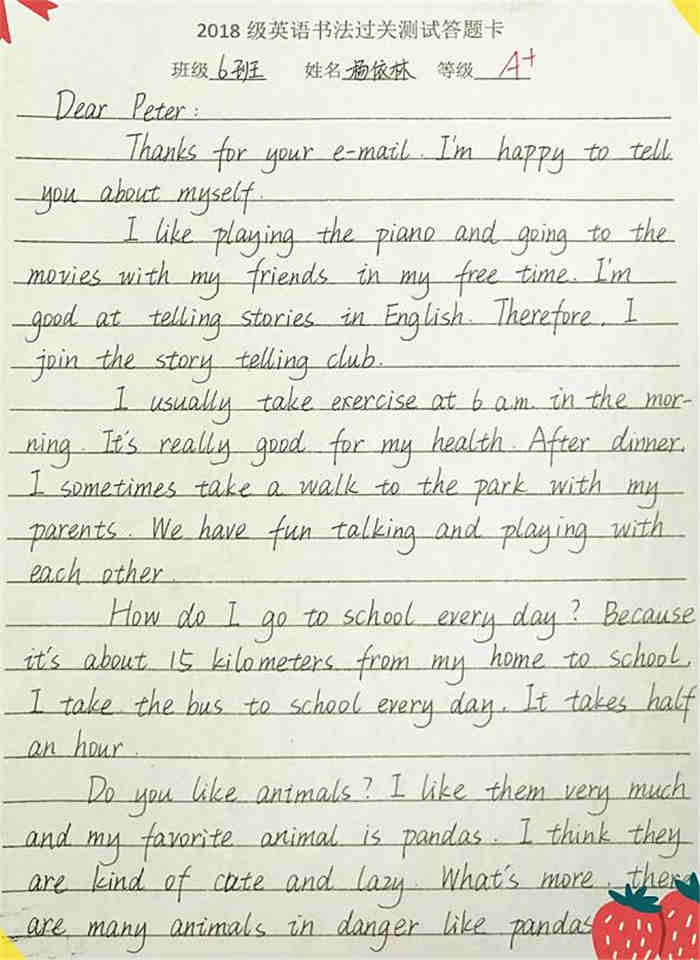 2018 级英语书法过关测试答题卡
班级 6班 姓名 杨依林 等级 A+
Dear Peter:
Thanks for your e-mail. I'm happy to tell
you about myself.
I like playing the piano and going to the
movies with my friends in my free time. I'm
good at telling stories in English. Therefore, I
join the story telling club.
I usually take exercise at 6 a.m. in the mor-
ning. It's really good for my health. After dinner,
I sometimes take a walk to the park with my
parents. We have fun talking and playing with
each other.
How do I go to school every day? Because
it's about 15 kilometers from my home to school,
I take the bus to school every day. It takes half
an hour.
Do you like animals? I like them very much
and my favorite animal is pandas. I think they
are kind of cute and lazy. What's more, there
are many animals in danger like pandas